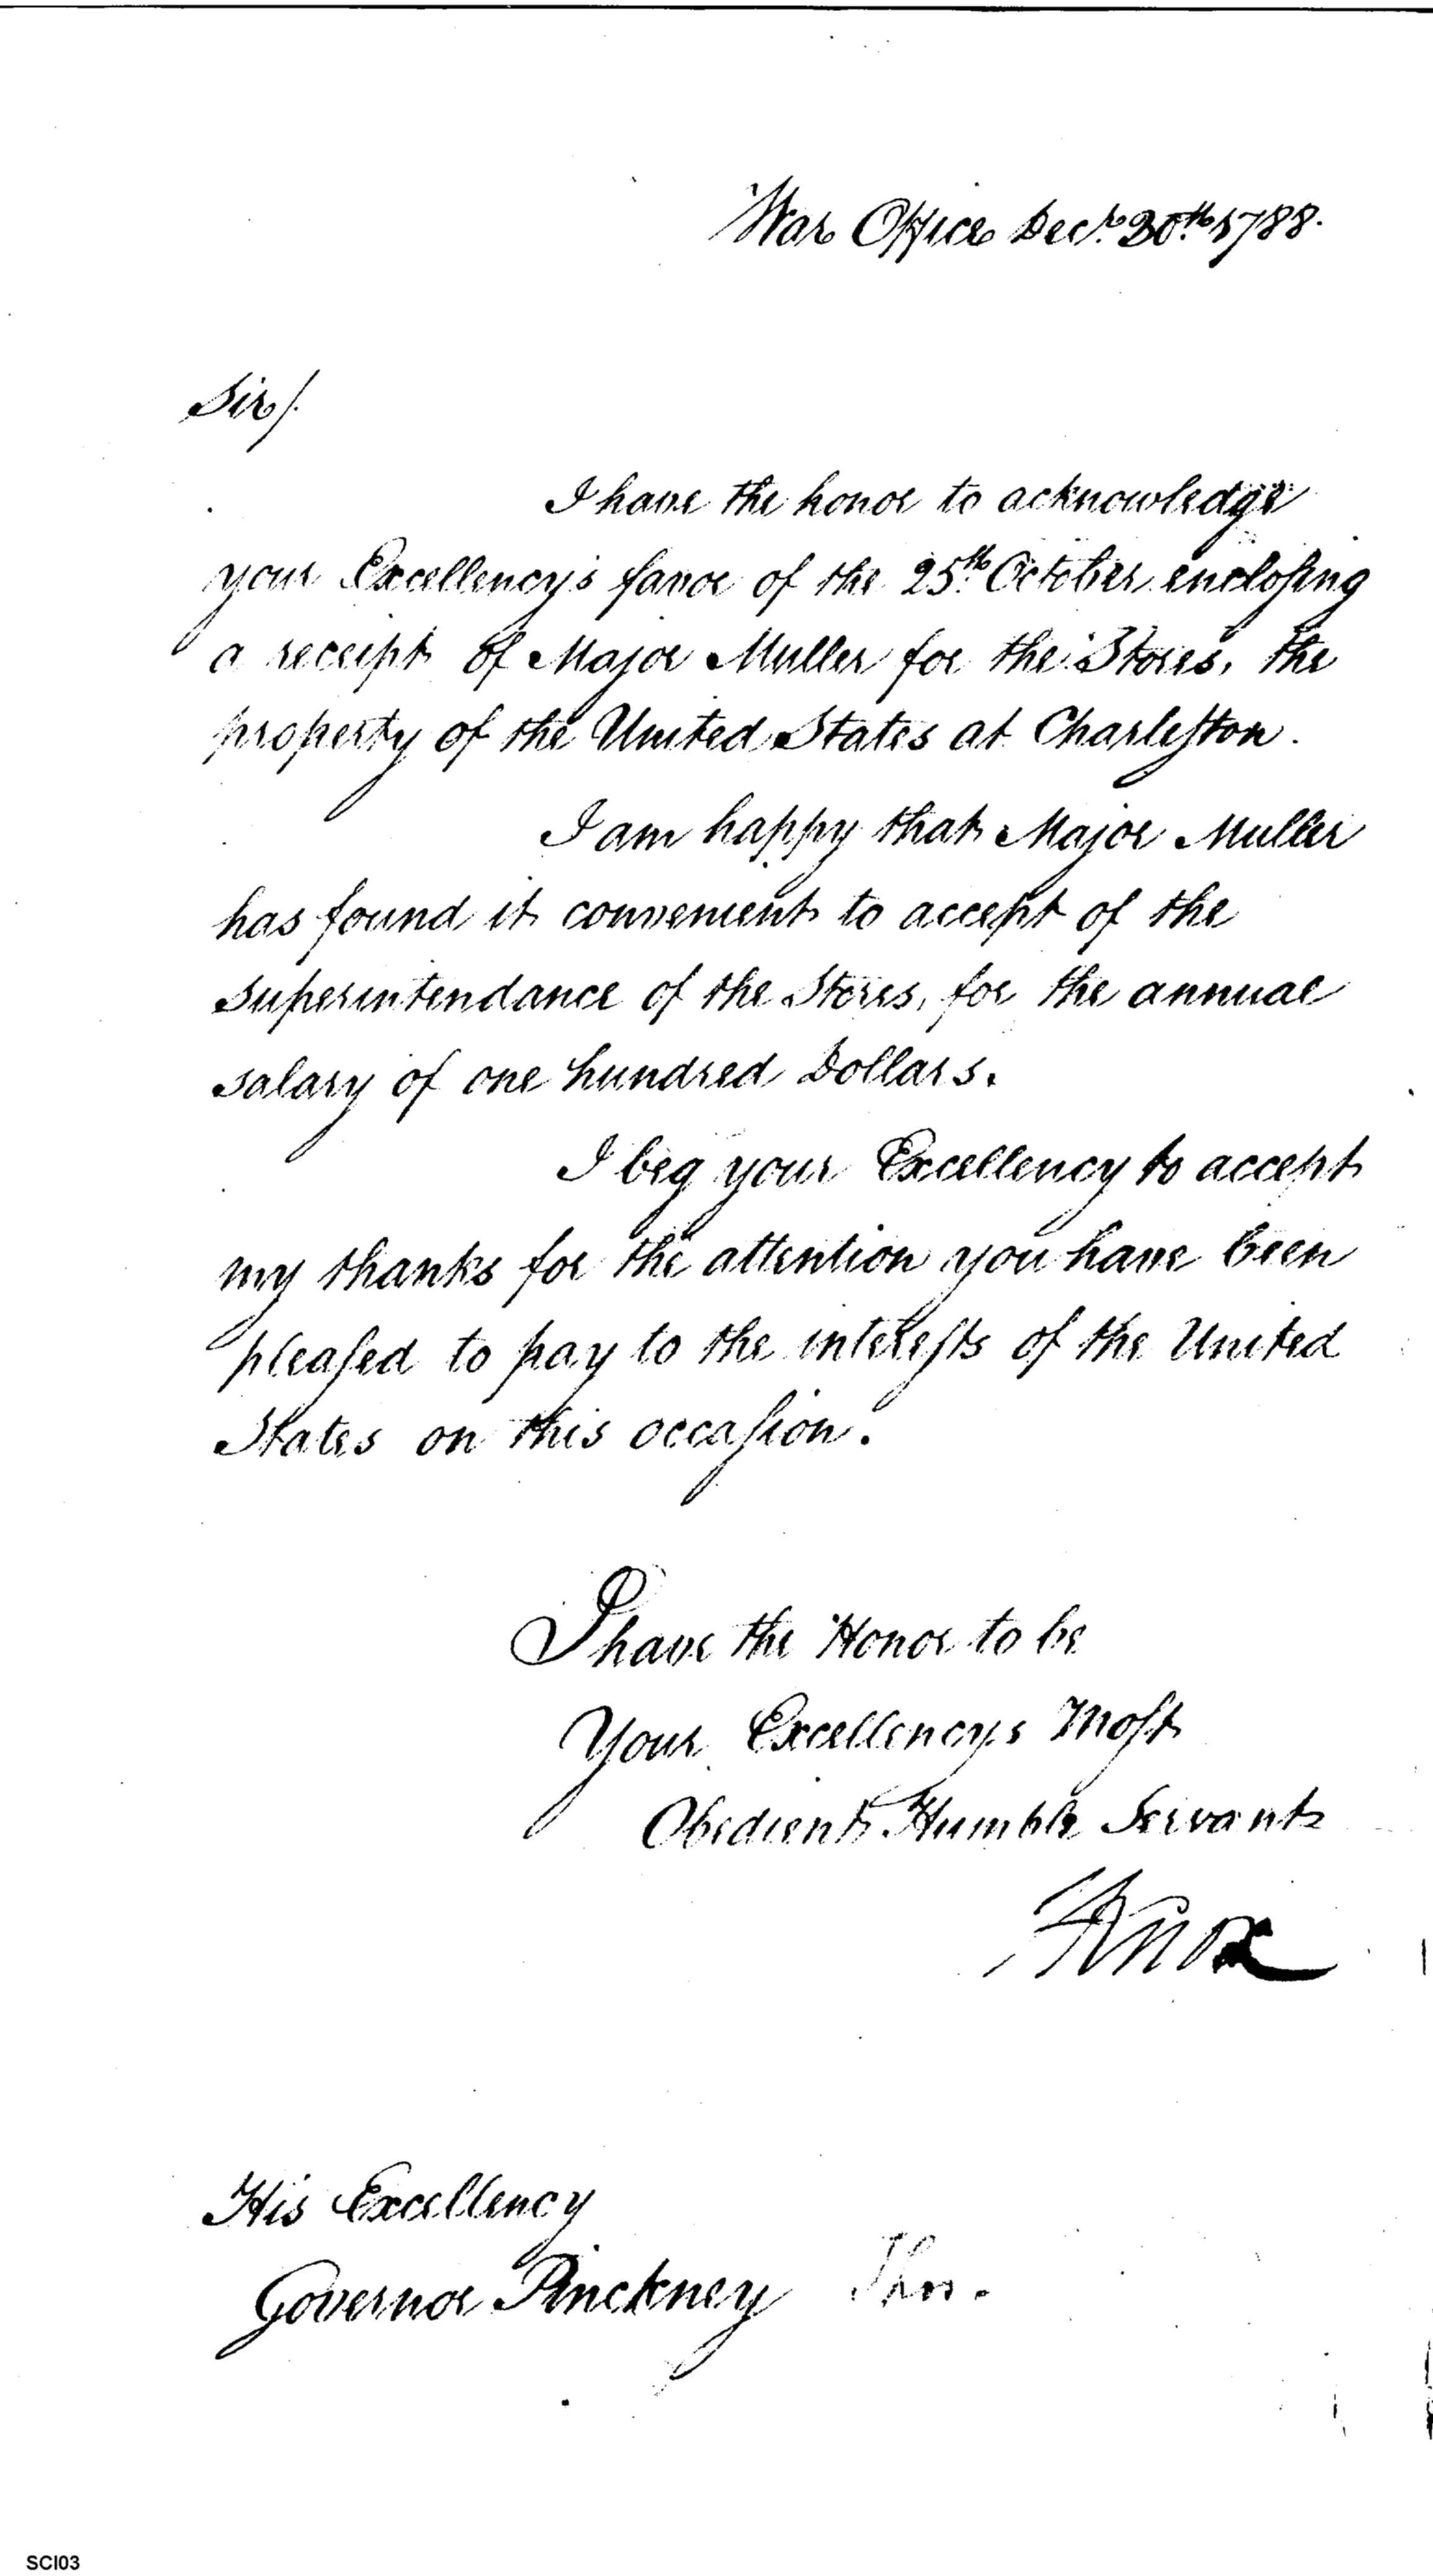 War Office Decr. 30th 1788.
Sir/.
I have the honor to acknowledge
your Excellency's favor of the 25th October encloſing
a receipt of Major Muller for the Stores, the
property of the United States at Charleſton.
I am happy that Major Muller
has found it convenient to accept of the
superintendance of the Stores, for the annual
salary of one hundred Dollars.
I beg your Excellency to accept
my thanks for the attention you have been
pleaſed to pay to the intereſts of the United
States on this occaſion.
I have the Honor to be
Your Excellencys Moſt
Obedient Humble Servant
HKnox
His Excellency
Governor Pinckney Thos.
SCI03